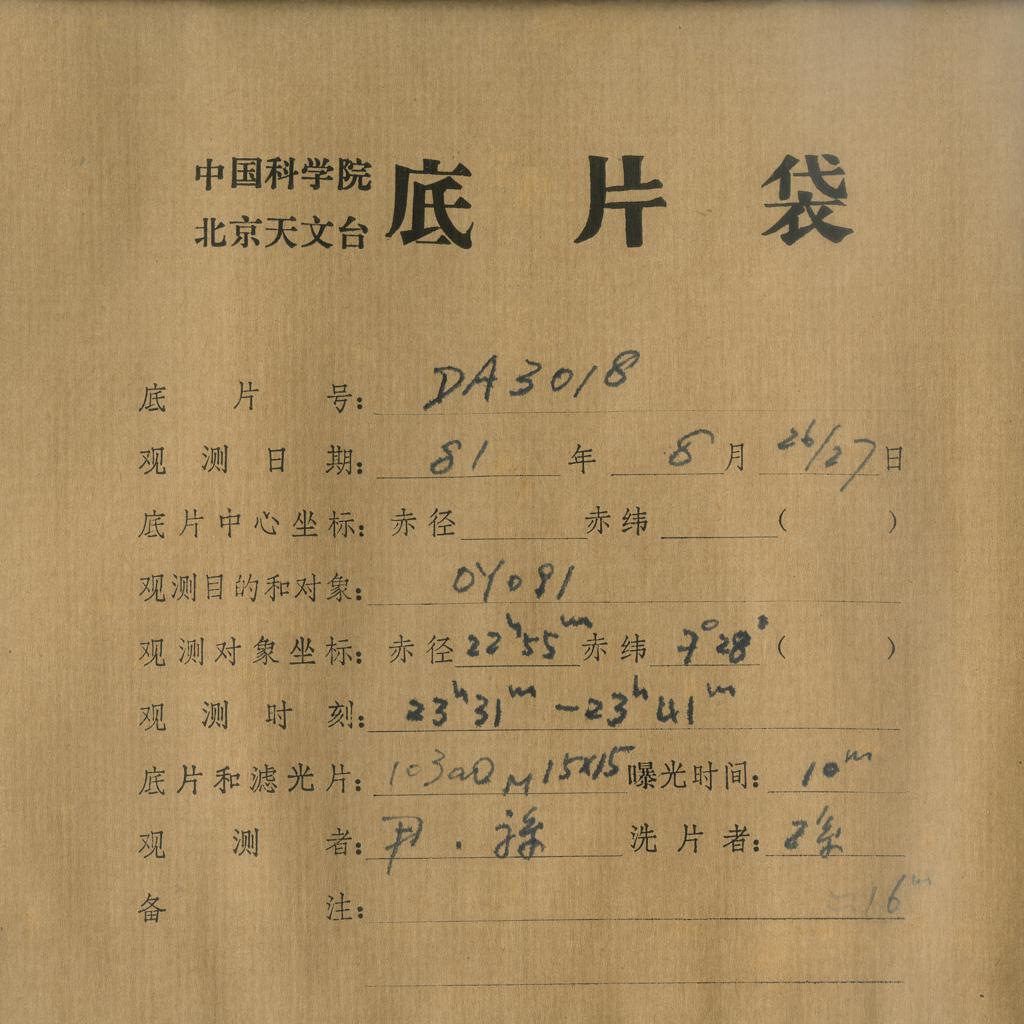 中国科学院
北京天文台
底片袋
底片号: DA3018
观测日期: 81 年 8 月 26/27 日
底片中心坐标: 赤径 赤纬 ( )
观测目的和对象: OY091
观测对象坐标: 赤径 22h55m 赤纬 7°28' ( )
观测时刻: 23h31m -23h41m
底片和滤光片: 103aO M 15x15 曝光时间: 10m
观测者: 尹.孙 洗片者: 孙
备注: ≈16m